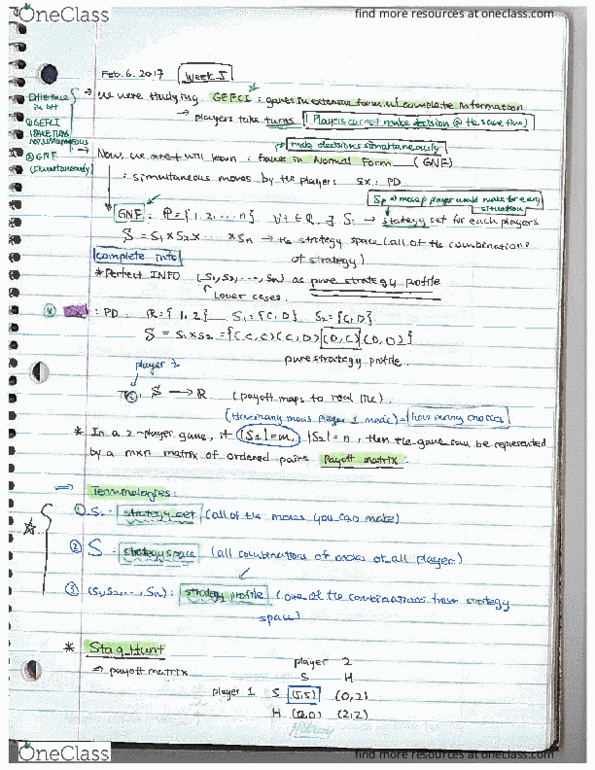 OneClass
find more resources at oneclass.com
Feb. 6. 2017 Week 5
Difference in btt
① GEFCI
② GNF
(simultaneously)
→ we were studying GEFCI : games in extensive form w/ complete information
→ players take turns (Players cannot make decision @ the same time)
make decisions simultaneously
Now, we are will learn : Games in Normal Form (GNF)
: simultaneous moves by the players ex: PD
Si → moves player would make for every situation
GNF : P = {1, 2, ... n} ∀i ∈ P, ∃ Si → strategy set for each players
S = S1 × S2 × ... × Sn → the strategy space (all of the combinations of strategy)
complete info
* Perfect INFO (S1, S2, ..., Sn) as pure strategy profile
lower cases.
: PD. P = {1, 2} S1 = {C, D} S2 = {C, D}
S = S1 × S2 = {(C, C) (C, D) (D, C) (D, D)}
pure strategy profile.
player 1
S → R. (payoff maps to real line)
(How many moves player 1 made) = how many choices
* In a 2-player game, if |S1| = m, |S2| = n, then the game can be represented
by a m×n matrix of ordered pairs Payoff matrix.
⇒ Terminologies:
① Si : strategy set (all of the moves you can make)
② S : strategy space (all combinations of moves of all player)
③ (S1, S2, ..., Sn) : strategy profile (one of the combinations from strategy
space)
* Stag Hunt
⇒ payoff matrix
player 2
S H
player 1 S (5,5) (0,2)
H (2,0) (2,2)
Hilroy
OneClass
find more resources at oneclass.com